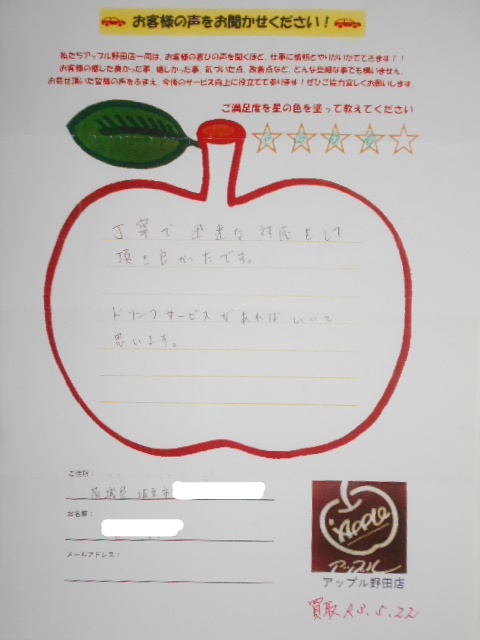 お客様の声をお聞かせください！
私たちアップル野田店一同は、お客様の喜びの声を聞くほど、仕事に情熱とやりがいがでてきます！！
お客様の感じた良かった事、嬉しかった事、気づいた点、改善点など、どんな些細な事でも構いません。
お寄せ頂いた皆様の声をふまえ、今後のサービス向上に役立てて参ります！ぜひご協力宜しくお願いします。
ご満足度を星の色を塗って教えてください
丁寧で迅速な対応をして
頂き良かったです。
ドリンクサービスがあればいいと
思います。
ご住所：
茨城県
お名前：
メールアドレス：
APPLE
アップル
アップル野田店
買取 5.22